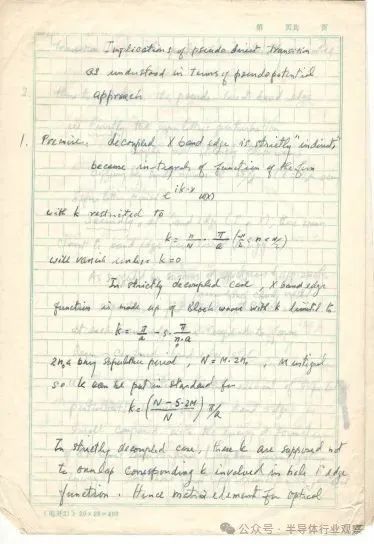 第 页共 页
Implications of pseudo direct transition
as understood in terms of pseudopotential
approach
1. Premise: decoupled X band edge is strictly "indirect"
because integrals of function of the form
e^{ik·x} u(x)
with k restricted to
k = n/N · π/a
will vanish unless k=0
In strictly decoupled case, X band edge
function is made up of Bloch waves with k limited to
k = π/a - s·π/n₀a
2n₀a being superlattice period, N = M·2n₀, M integral
so k can be put in standard form
k = (N - s·2M / N) π/a
In strictly decoupled case, these k are supposed not
to overlap corresponding k involved in hole Γ edge
function. Hence matrix element for optical
20×20=400
公众号·半导体行业观察